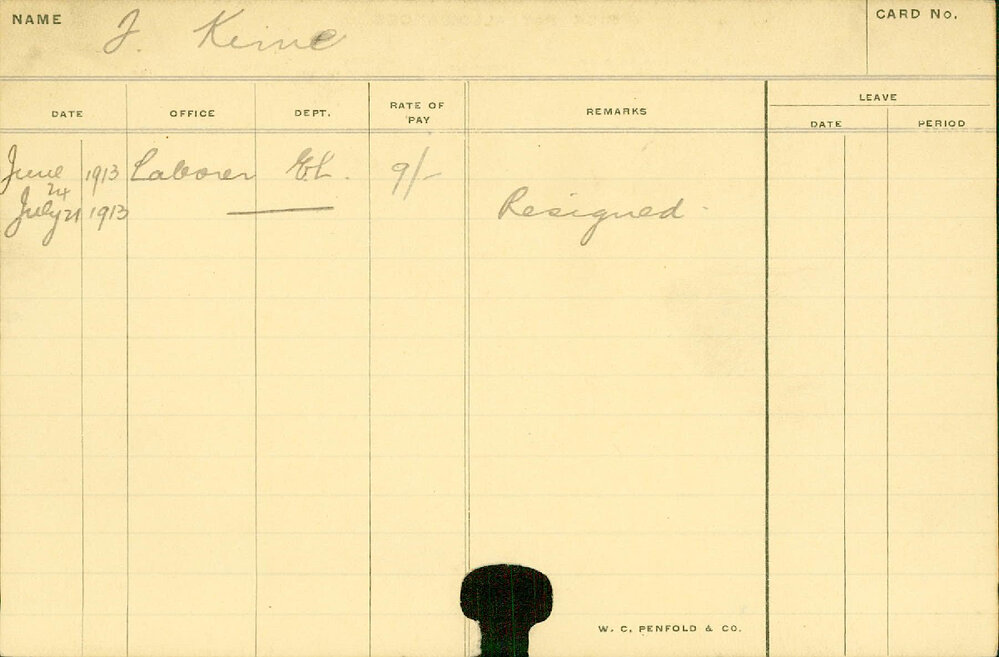 NAME J. Keirne CARD No.
DATE OFFICE DEPT. RATE OF PAY REMARKS LEAVE
DATE PERIOD
June 24 1913 Laborer E.L. 9/-
July 21 1913 Resigned
W. C. PENFOLD & CO.